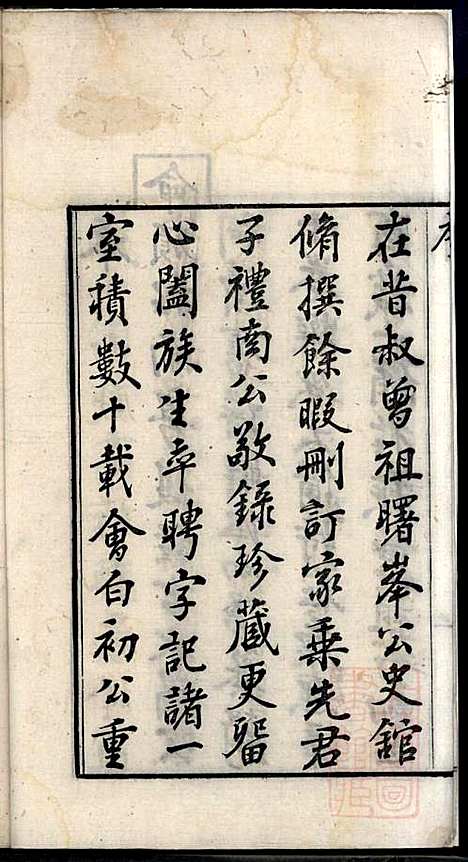 在昔叔曾祖曙峯公史館
脩撰餘暇刪訂家乘先君
子禮南公敬錄珍藏更留
心闔族生卒聘字記諸一
室積數十載會白初公重